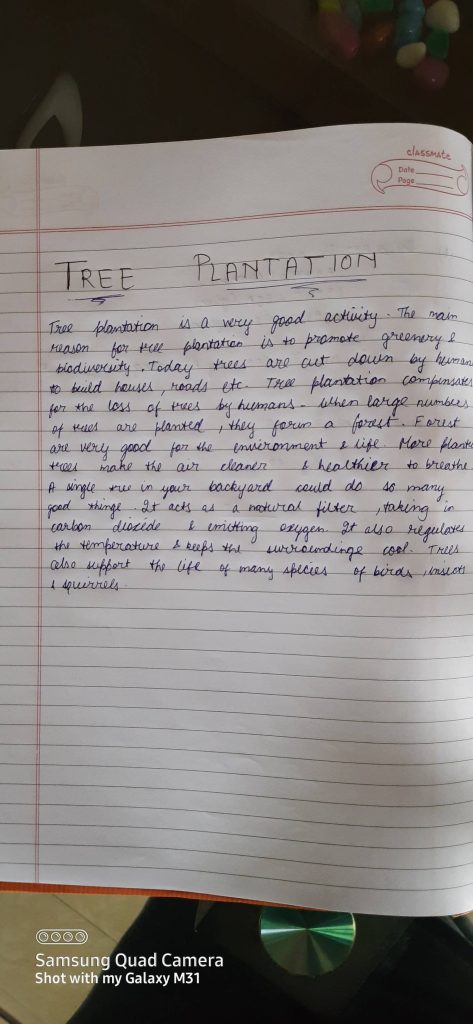 classmate
Date
Page
TREE PLANTATION
Tree plantation is a very good activity. The main
reason for tree plantation is to promote greenery &
biodiversity. Today trees are cut down by humans
to build houses, roads etc. Tree plantation compensates
for the loss of trees by humans. When large numbers
of trees are planted, they form a forest. Forest
are very good for the environment & life. More plante
trees make the air cleaner & healthier to breathe.
A single tree in your backyard could do so many
good things. It acts as a natural filter, taking in
carbon dioxide & emitting oxygen. It also regulates
the temperature & keeps the surroundings cool. Trees
also support the life of many species of birds, insects
& squirrels.
Samsung Quad Camera
Shot with my Galaxy M31